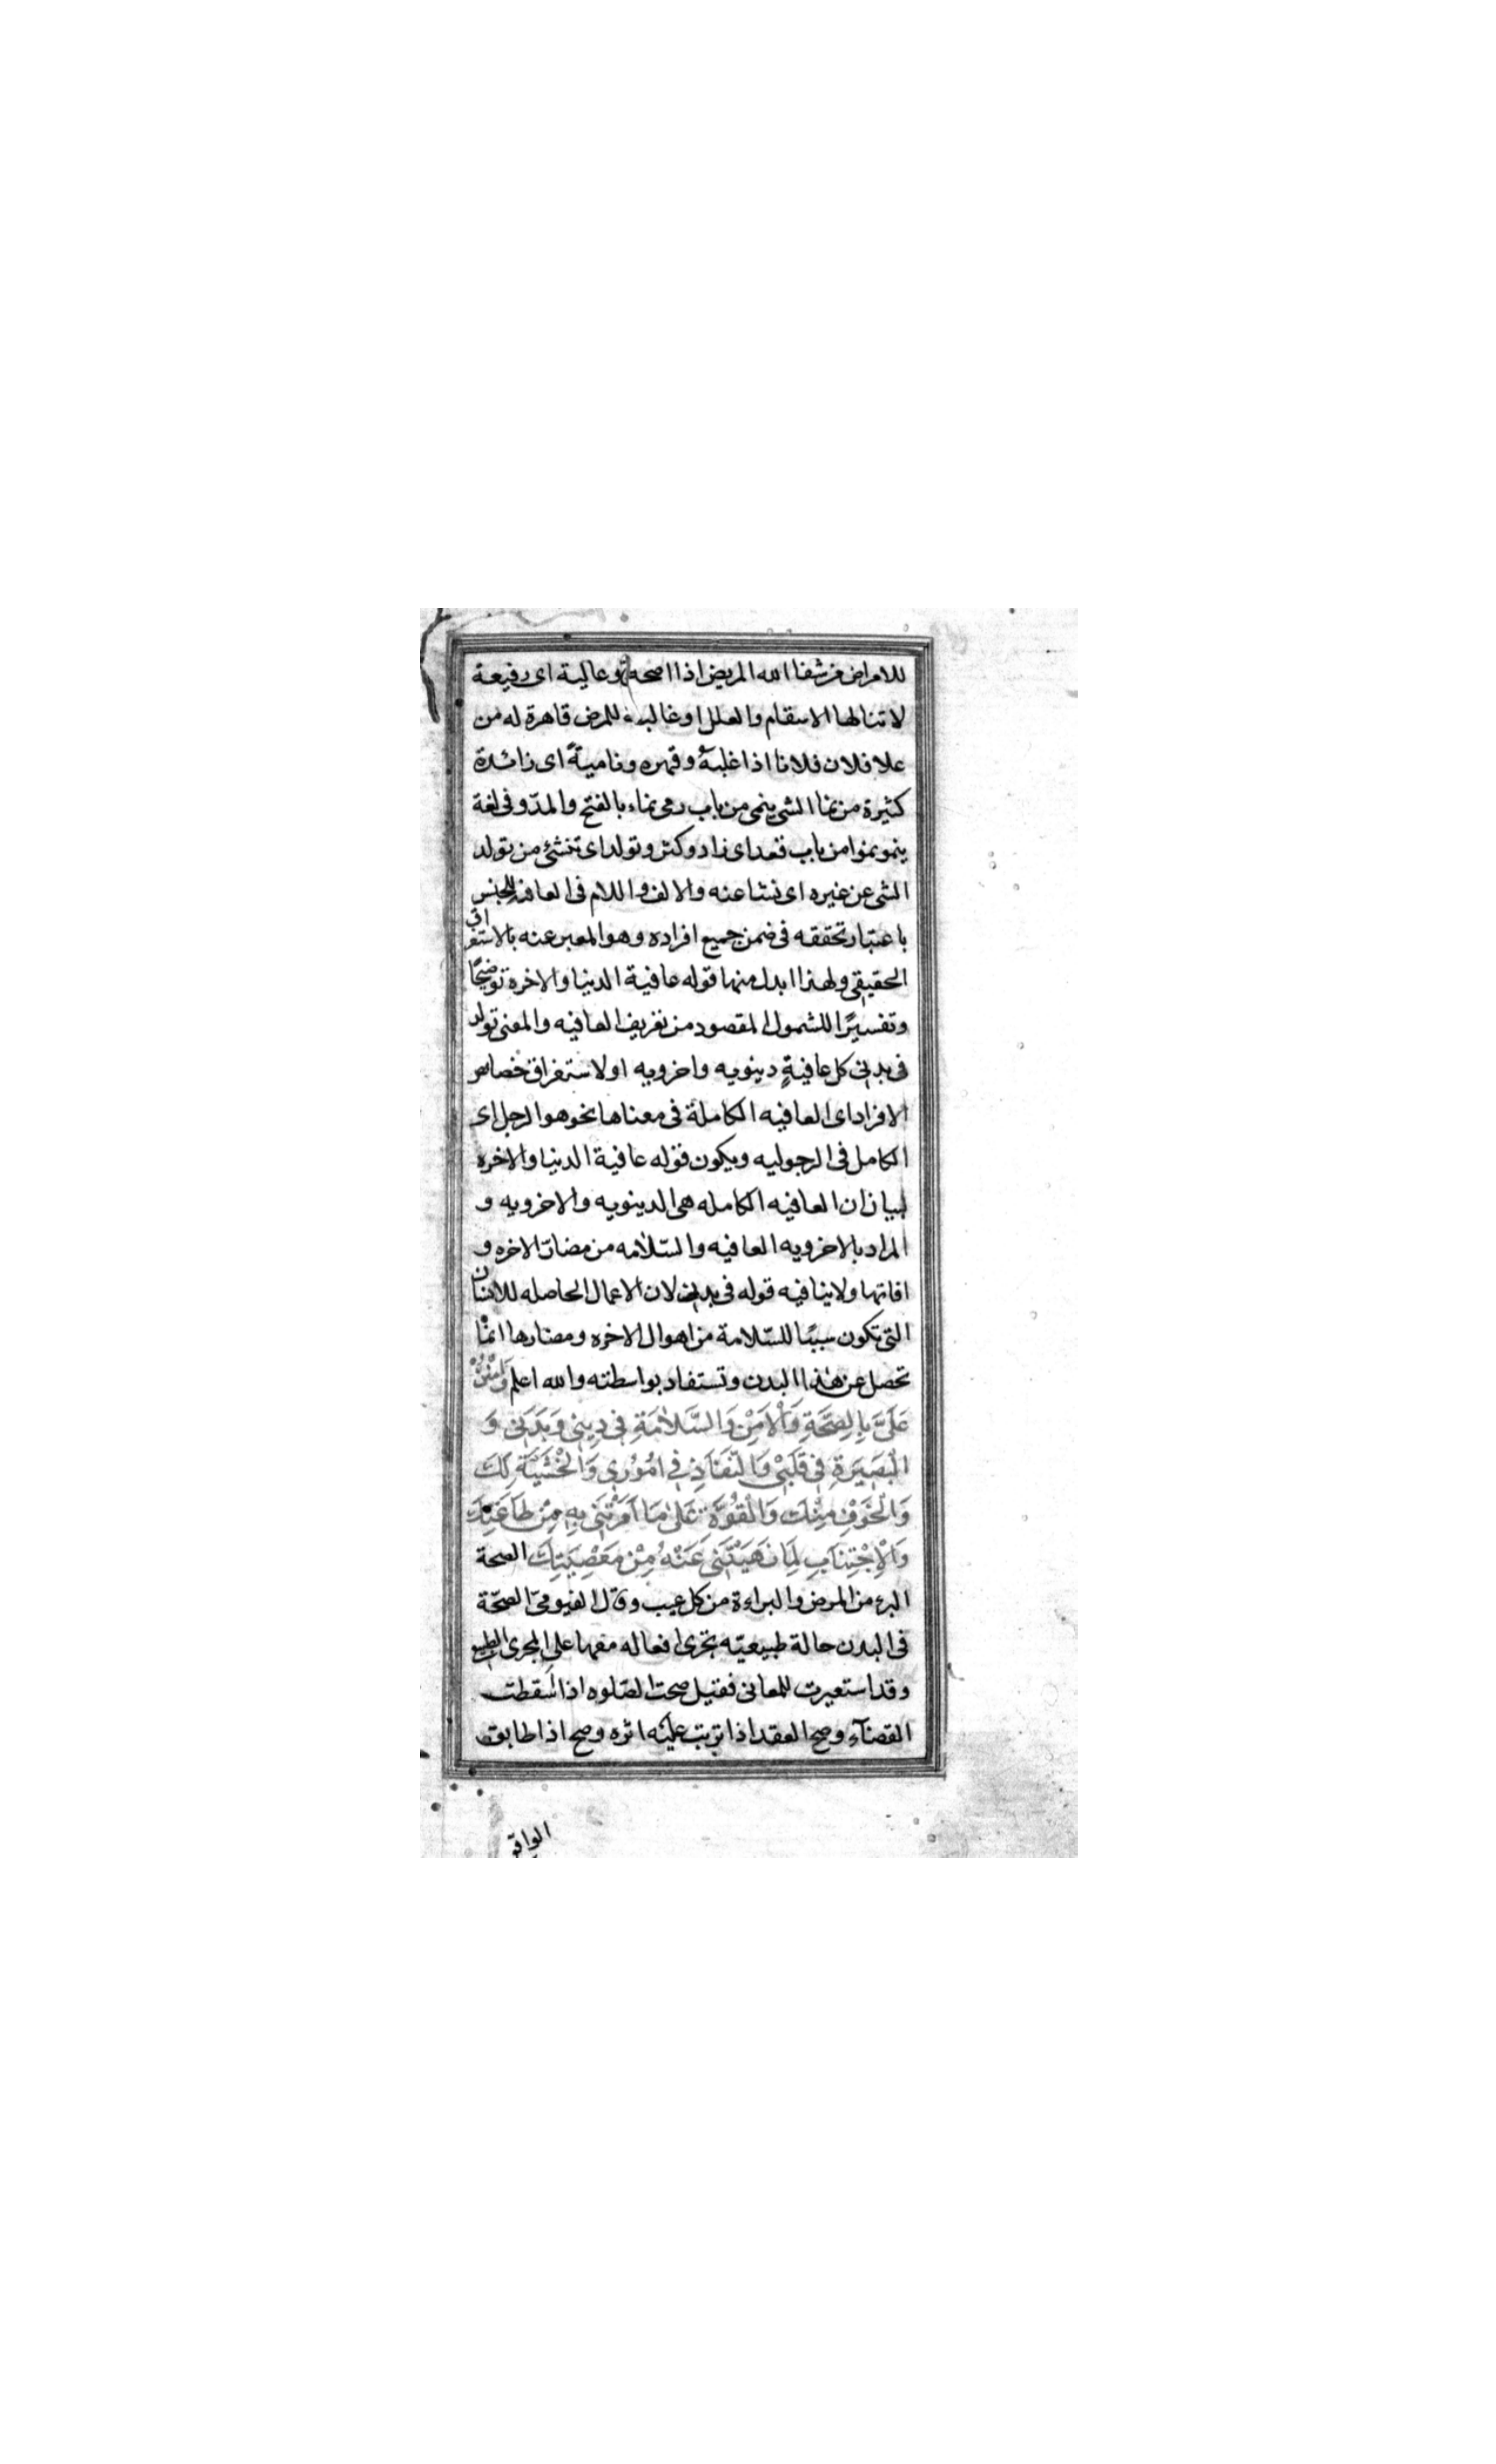 للامراض من شفا الله المريض اذا اصحه وعالية اى رفيعة
لا تنالها الاسقام والعلل او غالبة للمرض قاهرة له من
علا فلان فلانا اذا غلبهُ وقهره وناميةً اى زائدة
كثيرة من نما الشى ينمى من باب رمى نماء بالفتح والمدّ وفى لغة
ينمو نموا من باب قعد اى زاد وكثر وتولد اى تنشئ من تولد
الشى عن غيره اى نشا عنه والالف واللام فى العافية للجنس
باعتبار تحققه فى ضمن جميع افراده وهو المعبر عنه بالاستغراق
الحقيقى ولهذا ابدل منها قوله عافية الدنيا والاخرة توضيحًا
وتفسيرًا للشمول المقصود من تعريف العافيه والمعنى تولد
فى بدنى كل عافيةٍ دينويه واخرويه او لاستغراق خصايص
الافراد اى العافيه الكاملة فى معناها نحو هو الرجل اى
الكامل فى الرجوليه ويكون قوله عافية الدنيا والاخره
لبيان ان العافيه الكامله هى الدينويه والاخرويه و
المراد بالاخرويه العافيه والسّلامه من مضارّ الاخره و
افاتها ولا ينافيه قوله فى بدنى لان الاعمال الحاصله للانسان
التى تكون سببًا للسّلامة من اهوال الاخره ومضارها انمّا
تحصل عن هذا البدن وتستفاد بواسطته والله اعلم وَامْنُنْ
عَلَىَّ بِالصِّحَّةِ وَالْاَمْنِ وَالسَّلَامَةِ فِى دِينِى وَبَدَنِى وَ
الْبَصِيرَةِ فِى قَلْبِى وَالنَّفَاذِ فِى اُمُورِى وَالْخَشْيَةِ لَكَ
وَالْخَوْفِ مِنْكَ وَالْقُوَّةِ عَلَى مَا اَمَرْتَنِى بِهِ مِنْ طَاعَتِكَ
وَالْاِجْتِنَابِ لِمَا نَهَيْتَنِى عَنْهُ مِنْ مَعْصِيَتِكَ الصحة
البرء من المرض والبراءة من كل عيب وقال الفيومىّ الصحّة
فى البدن حالة طبيعيّه تجرى افعاله معها على المجرى الطبيعى
وقد استعيرت للمعانى فقيل صحت الصّلوه اذا اَسقطت
القضآء وصح العقد اذا ترتب عليه اثره وصح اذا طابق
الواقع